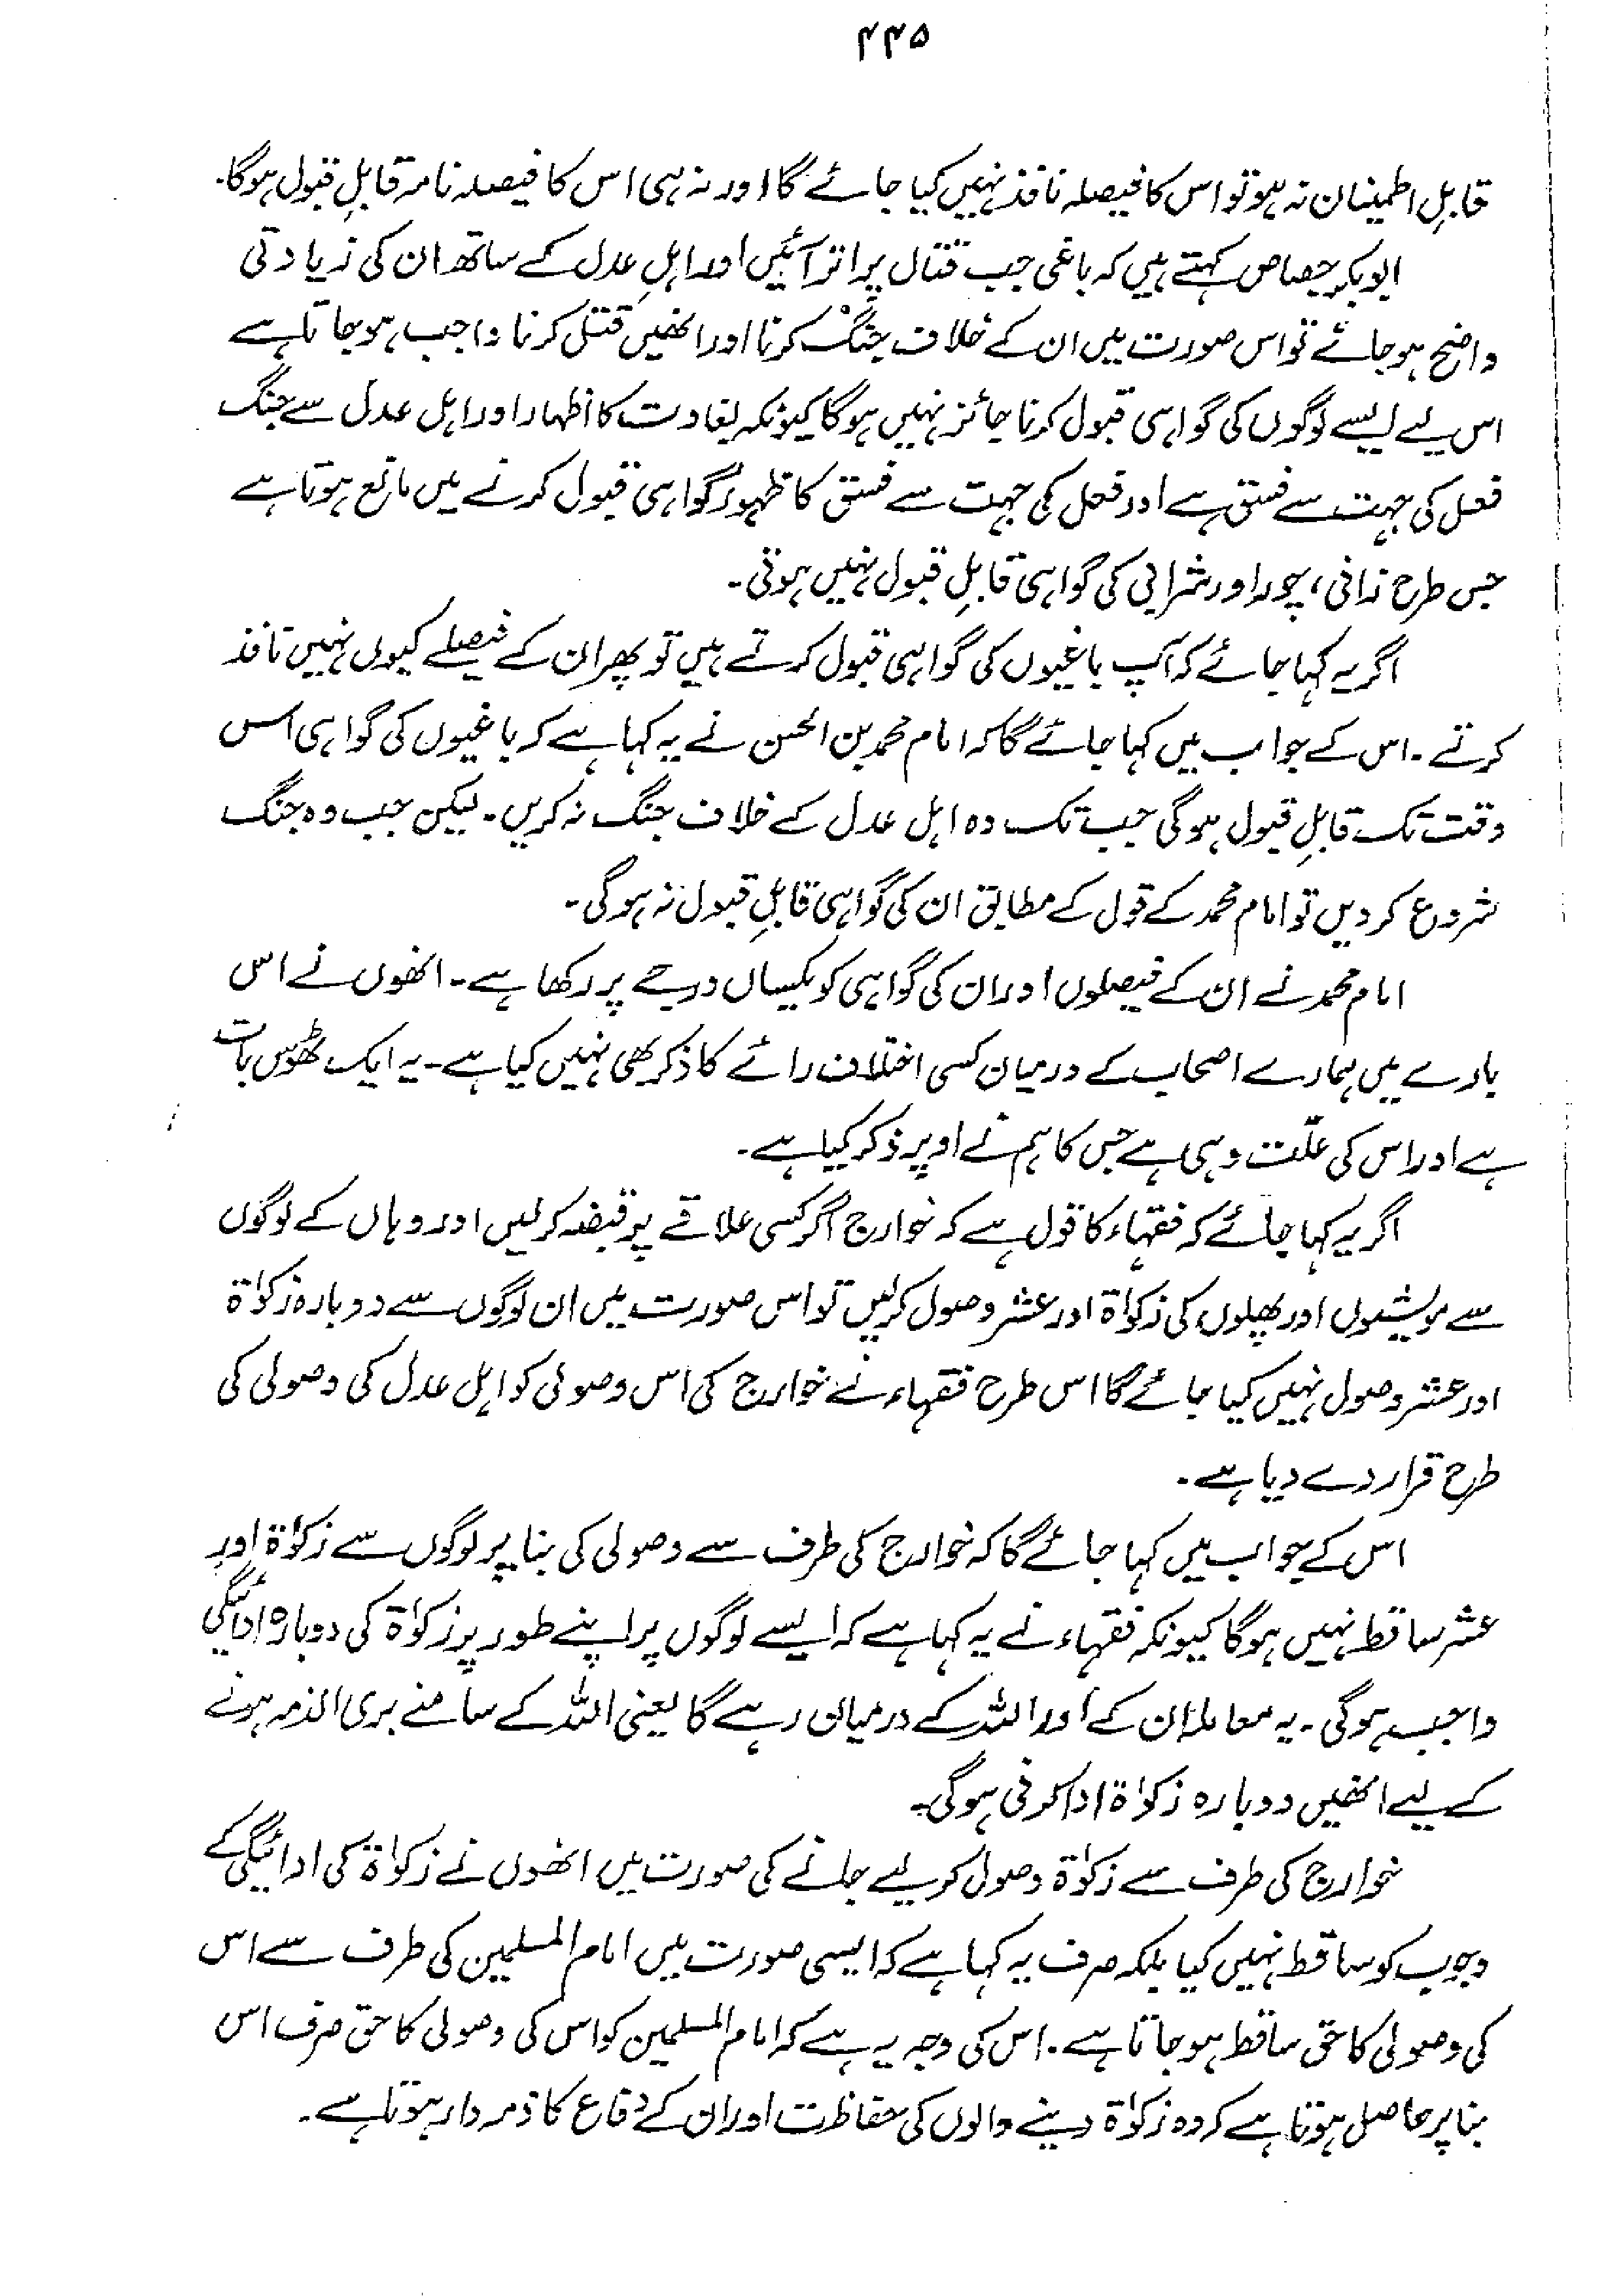 ۴۴۵
قابلِ اطمینان نہ ہو تو اس کا فیصلہ نافذ نہیں کیا جائے گا اور نہ ہی اس کا فیصلہ نامہ قابلِ قبول ہوگا۔
ابوبکر جصاص کہتے ہیں کہ باغی جب قتال پر اتر آئیں اور اہلِ عدل کے ساتھ ان کی زیادتی
واضح ہو جائے تو اس صورت میں ان کے خلاف جنگ کرنا اور انھیں قتل کرنا واجب ہو جاتا ہے
اس لیے ایسے لوگوں کی گواہی قبول کرنا جائز نہیں ہوگا کیونکہ بغاوت کا اظہار اور اہل عدل سے جنگ
فعل کی جہت سے فسق ہے اور فعل کی جہت سے فسق کا ظہور گواہی قبول کرنے میں مانع ہوتا ہے
جس طرح زانی، چور اور شرابی کی گواہی قابلِ قبول نہیں ہوتی۔
اگر یہ کہا جائے کہ آپ باغیوں کی گواہی قبول کرتے ہیں تو پھر ان کے فیصلے کیوں نہیں نافذ
کرتے۔ اس کے جواب میں کہا جائے گا کہ امام محمد بن الحسن نے یہ کہا ہے کہ باغیوں کی گواہی اس
وقت تک قابلِ قبول ہوگی جب تک وہ اہل عدل کے خلاف جنگ نہ کریں۔ لیکن جب وہ جنگ
شروع کر دیں تو امام محمد کے قول کے مطابق ان کی گواہی قابلِ قبول نہ ہوگی۔
امام محمد نے ان کے فیصلوں اور ان کی گواہی کو یکساں درجے پر رکھا ہے۔ انھوں نے اس
بارے میں ہمارے اصحاب کے درمیان کسی اختلاف رائے کا ذکر بھی نہیں کیا ہے۔ یہ ایک ٹھوس بات
ہے اور اس کی علّت وہی ہے جس کا ہم نے اوپر ذکر کیا ہے۔
اگر یہ کہا جائے کہ فقہاء کا قول ہے کہ خوارج اگر کسی علاقے پر قبضہ کر لیں اور وہاں کے لوگوں
سے مویشیوں اور پھلوں کی زکوٰۃ اور عشر وصول کرلیں تو اس صورت میں ان لوگوں سے دوبارہ زکوٰۃ
اور عشر وصول نہیں کیا جائے گا اس طرح فقہاء نے خوارج کی اس وصولی کو اہل عدل کی وصولی کی
طرح قرار دے دیا ہے۔
اس کے جواب میں کہا جائے گا کہ خوارج کی طرف سے وصولی کی بنا پر لوگوں سے زکوٰۃ اور
عشر ساقط نہیں ہوگا کیونکہ فقہاء نے یہ کہا ہے کہ ایسے لوگوں پر اپنے طور پر زکوٰۃ کی دوبارہ ادائیگی
واجب ہوگی۔ یہ معاملہ ان کے اور اللہ کے درمیان رہے گا یعنی اللہ کے سامنے بری الذمہ ہونے
کے لیے انھیں دوبارہ زکوٰۃ ادا کرنی ہوگی۔
خوارج کی طرف سے زکوٰۃ وصول کر لیے جانے کی صورت میں انھوں نے زکوٰۃ کی ادائیگی کے
وجوب کو ساقط نہیں کیا بلکہ صرف یہ کہا ہے کہ ایسی صورت میں امام المسلمین کی طرف سے اس
کی وصولی کا حق ساقط ہو جاتا ہے۔ اس کی وجہ یہ ہے کہ امام المسلمین کو اس کی وصولی کا حق صرف اس
بنا پر حاصل ہوتا ہے کہ وہ زکوٰۃ دینے والوں کی حفاظت اور ان کے دفاع کا ذمہ دار ہوتا ہے۔